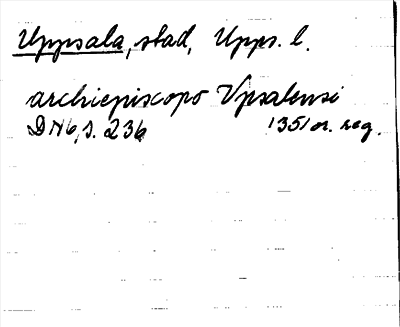 Uppsala, stad, Upps. l.
archiepiscopo Vpsalensi
DN6, s. 236 1351 or. reg.